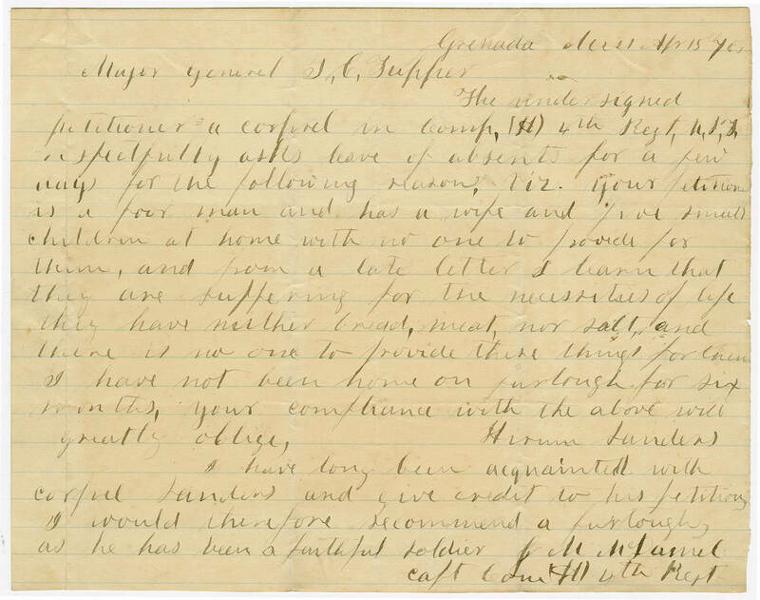 Grenada Miss Apr 15
Major General T, C, Tupper
The undersigned
petitioner a corporel in Comp, (H) 4th Regt,
respectfully asks leave of absents for a few
days for the following reasons, Viz. Your petitioner
is a poor man and has a wife and five small
children at home with no one to provide for
them, and from a late letter I learn that
they are suffering for the necessities of life
they have neither bread, meat, nor salt, and
there is no one to provide these things for them
I have not been home on furlough for six
months, your compliance with the above will
greatly oblige, Hirum Sanders
I have long been acquainted with
corpul Sanders and give credit to his petition,
I would therefore recommend a furlough,
as he has been a faithful soldier
capt Com (H) 4th Regt